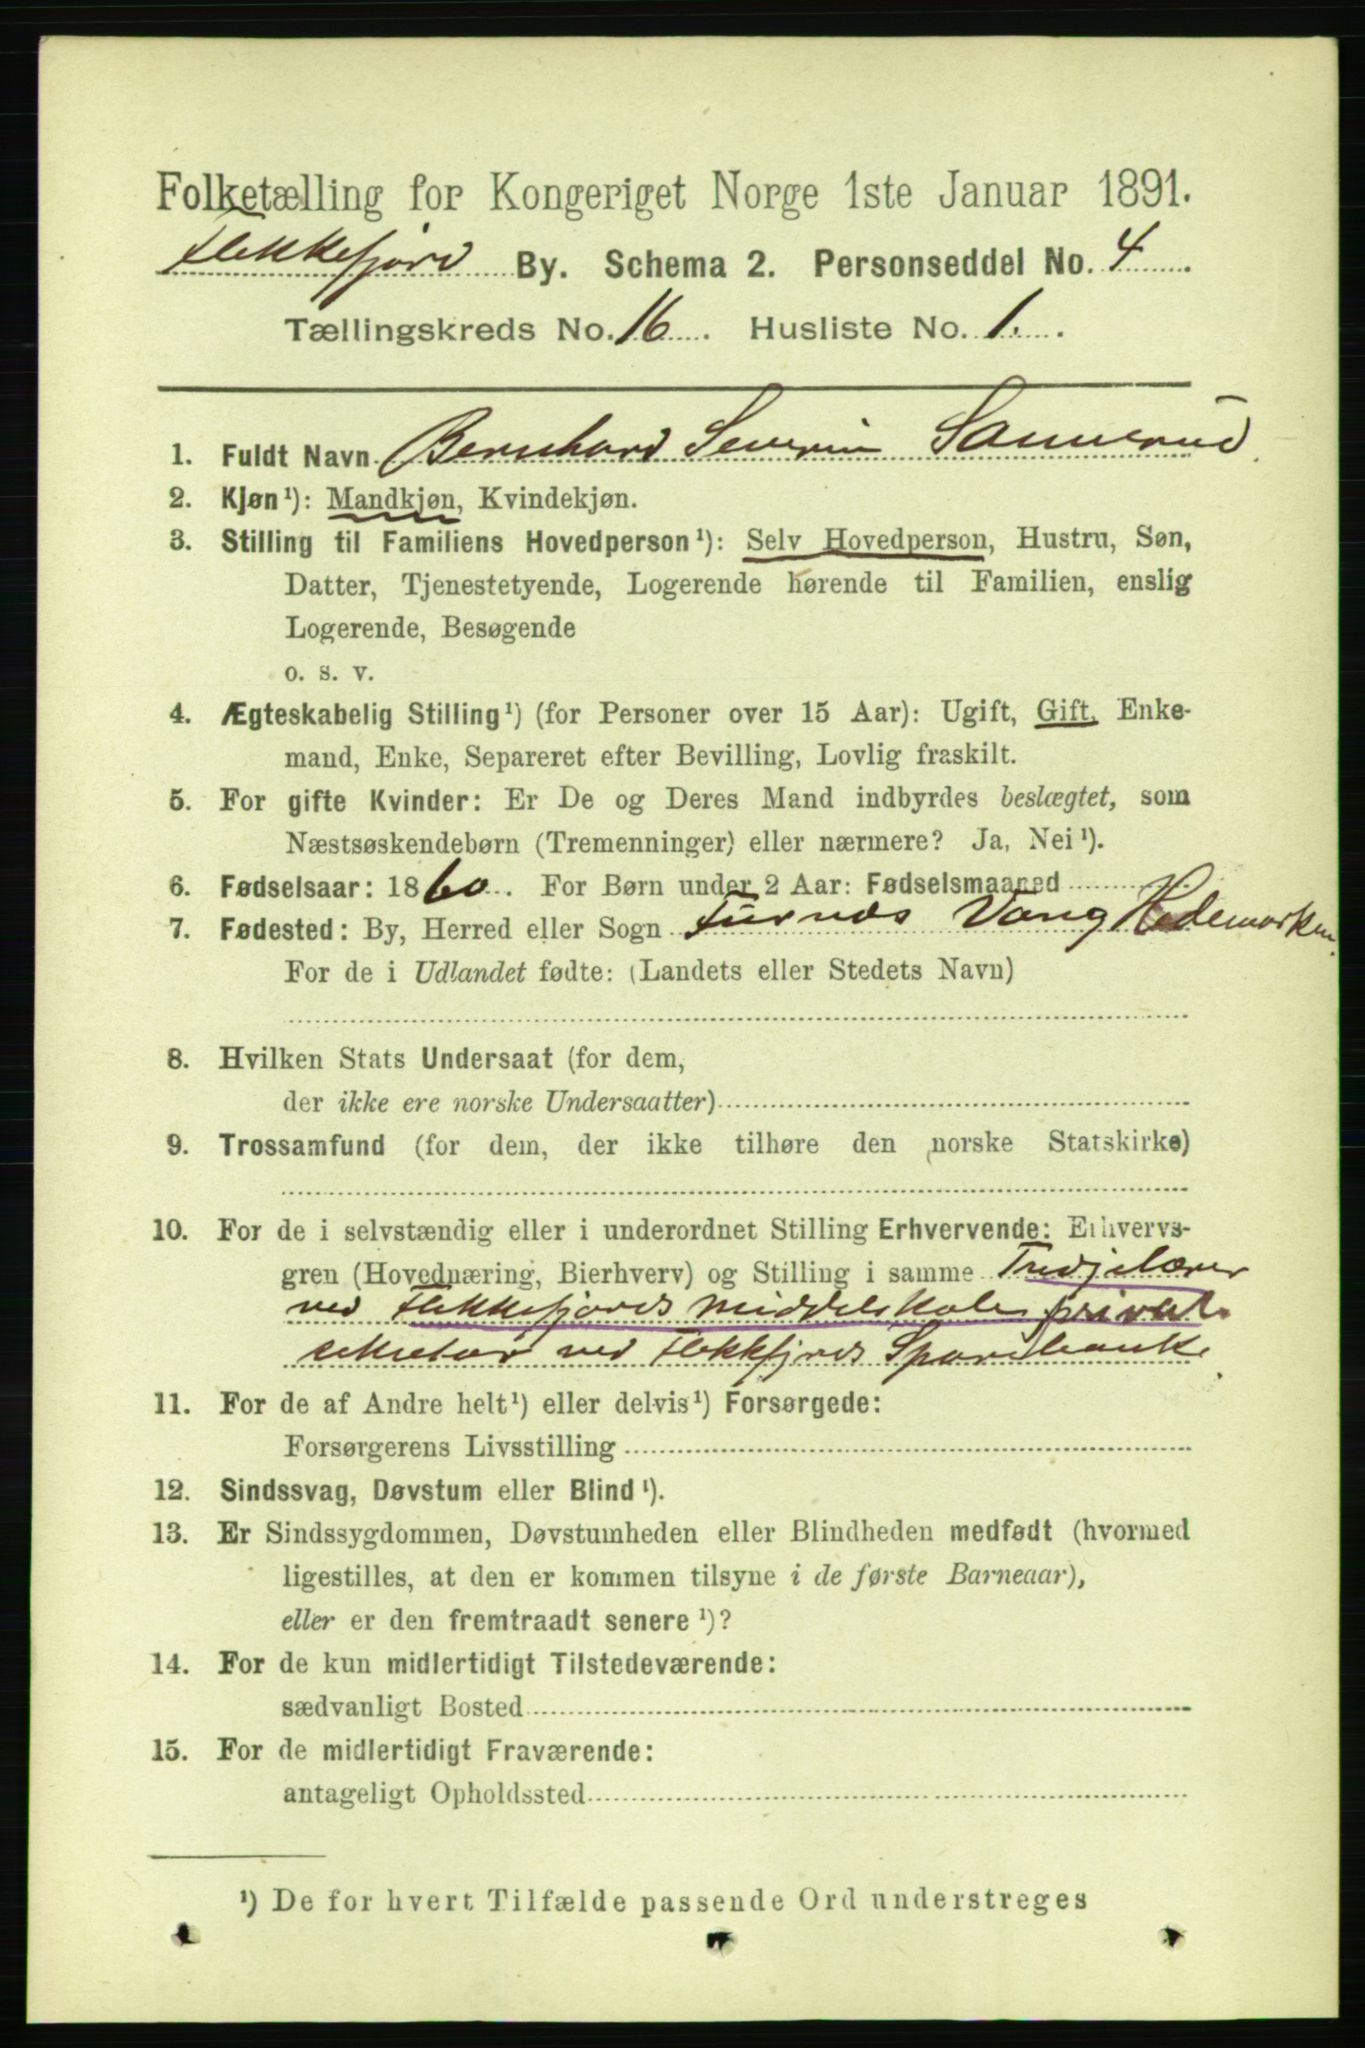 Folketælling for Kongeriget Norge 1ste Januar 1891.
Flekkefjord By. Schema 2. Personseddel No. 4
Tællingskreds No. 16. Husliste No. 1.
1. Fuldt Navn Bernhard Severin Sannerud
2. Kjøn¹): Mandkjøn, Kvindekjøn.
3. Stilling til Familiens Hovedperson¹): Selv Hovedperson, Hustru, Søn,
Datter, Tjenestetyende, Logerende hørende til Familien, enslig
Logerende, Besøgende
o. s. v.
4. Ægteskabelig Stilling¹) (for Personer over 15 Aar): Ugift, Gift, Enke-
mand, Enke, Separeret efter Bevilling, Lovlig fraskilt.
5. For gifte Kvinder: Er De og Deres Mand indbyrdes beslægtet, som
Næstsøskendebørn (Tremenninger) eller nærmere? Ja, Nei¹).
6. Fødselsaar: 1860. For Børn under 2 Aar: Fødselsmaaned
7. Fødested: By, Herred eller Sogn Furnæs Vang Hedemarken.
For de i Udlandet fødte: (Landets eller Stedets Navn)
8. Hvilken Stats Undersaat (for dem,
der ikke ere norske Undersaatter)
9. Trossamfund (for dem, der ikke tilhøre den norske Statskirke)
10. For de i selvstændig eller i underordnet Stilling Erhvervende: Erhvervs-
gren (Hovednæring, Bierhverv) og Stilling i samme Tredjelærer
ved Flekkefjords middelskole privat.
sekretær ved Flekkfjords Sparebank.
11. For de af Andre helt¹) eller delvis¹) Forsørgede:
Forsørgerens Livsstilling
12. Sindssvag, Døvstum eller Blind¹).
13. Er Sindssygdommen, Døvstumheden eller Blindheden medfødt (hvormed
ligestilles, at den er kommen tilsyne i de første Barneaar),
eller er den fremtraadt senere¹)?
14. For de kun midlertidigt Tilstedeværende:
sædvanligt Bosted
15. For de midlertidigt Fraværende:
antageligt Opholdssted
¹) De for hvert Tilfælde passende Ord understreges